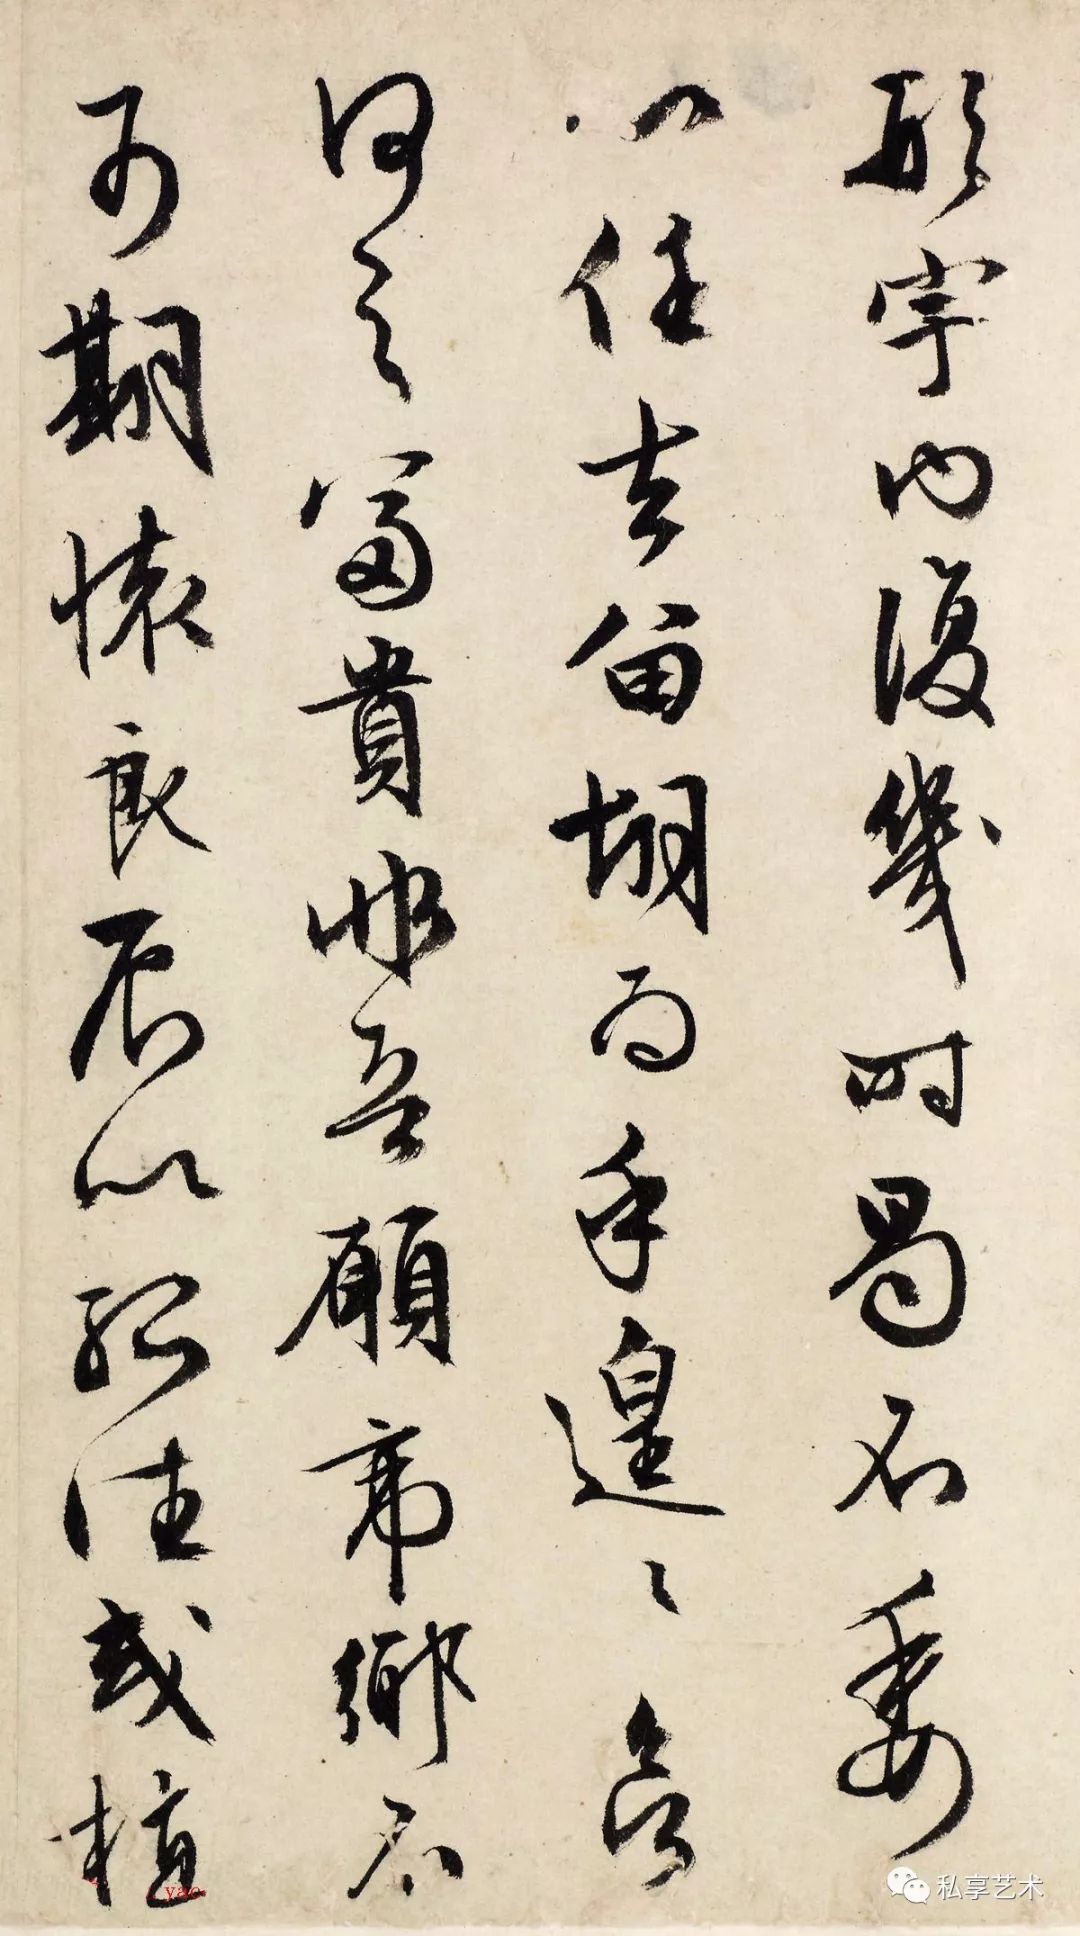 形宇内復幾時曷不委
心任去留胡為乎遑々欲
何之富貴非吾願帝鄉不
可期懷良辰以孤往或植
yac.
私享艺术